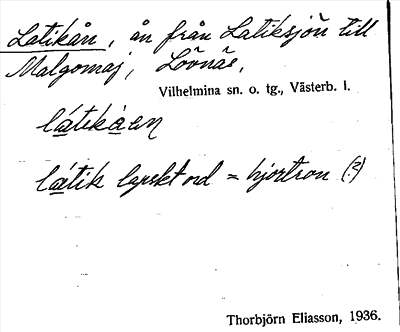 Latikån, ån från Latiksjön till
Malgomaj, Lövnäs,
Vilhelmina sn. o. tg., Västerb. l.
látikåen
látik lapskt ord = hjortron (?)
Thorbjörn Eliasson, 1936.